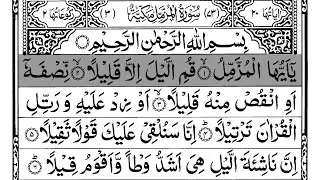 اٰيَاتُهَا ٢٠ (٧٣) سُوْرَةُ الْمُزَّمِّلِ مَكِّيَّةٌ (٣) رُكُوْعَاتُهَا ٢
بِسْمِ اللهِ الرَّحْمٰنِ الرَّحِيْمِ
يٰۤاَيُّهَا الْمُزَّمِّلُ ۙ قُمِ الَّيْلَ اِلَّا قَلِيْلًا ۙ نِّصْفَهٗۤ
اَوِ انْقُصْ مِنْهُ قَلِيْلًا ۙ اَوْ زِدْ عَلَيْهِ وَ رَتِّلِ
الْقُرْاٰنَ تَرْتِيْلًا ؕ اِنَّا سَنُلْقِيْ عَلَيْكَ قَوْلًا ثَقِيْلًا
اِنَّ نَاشِئَةَ الَّيْلِ هِيَ اَشَدُّ وَطْاً وَّ اَقْوَمُ قِيْلًا ؕ